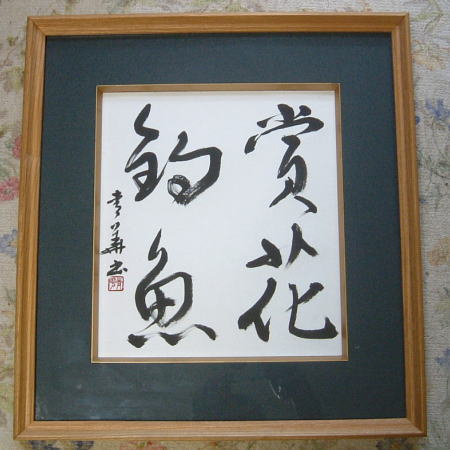 賞花
釣魚
書